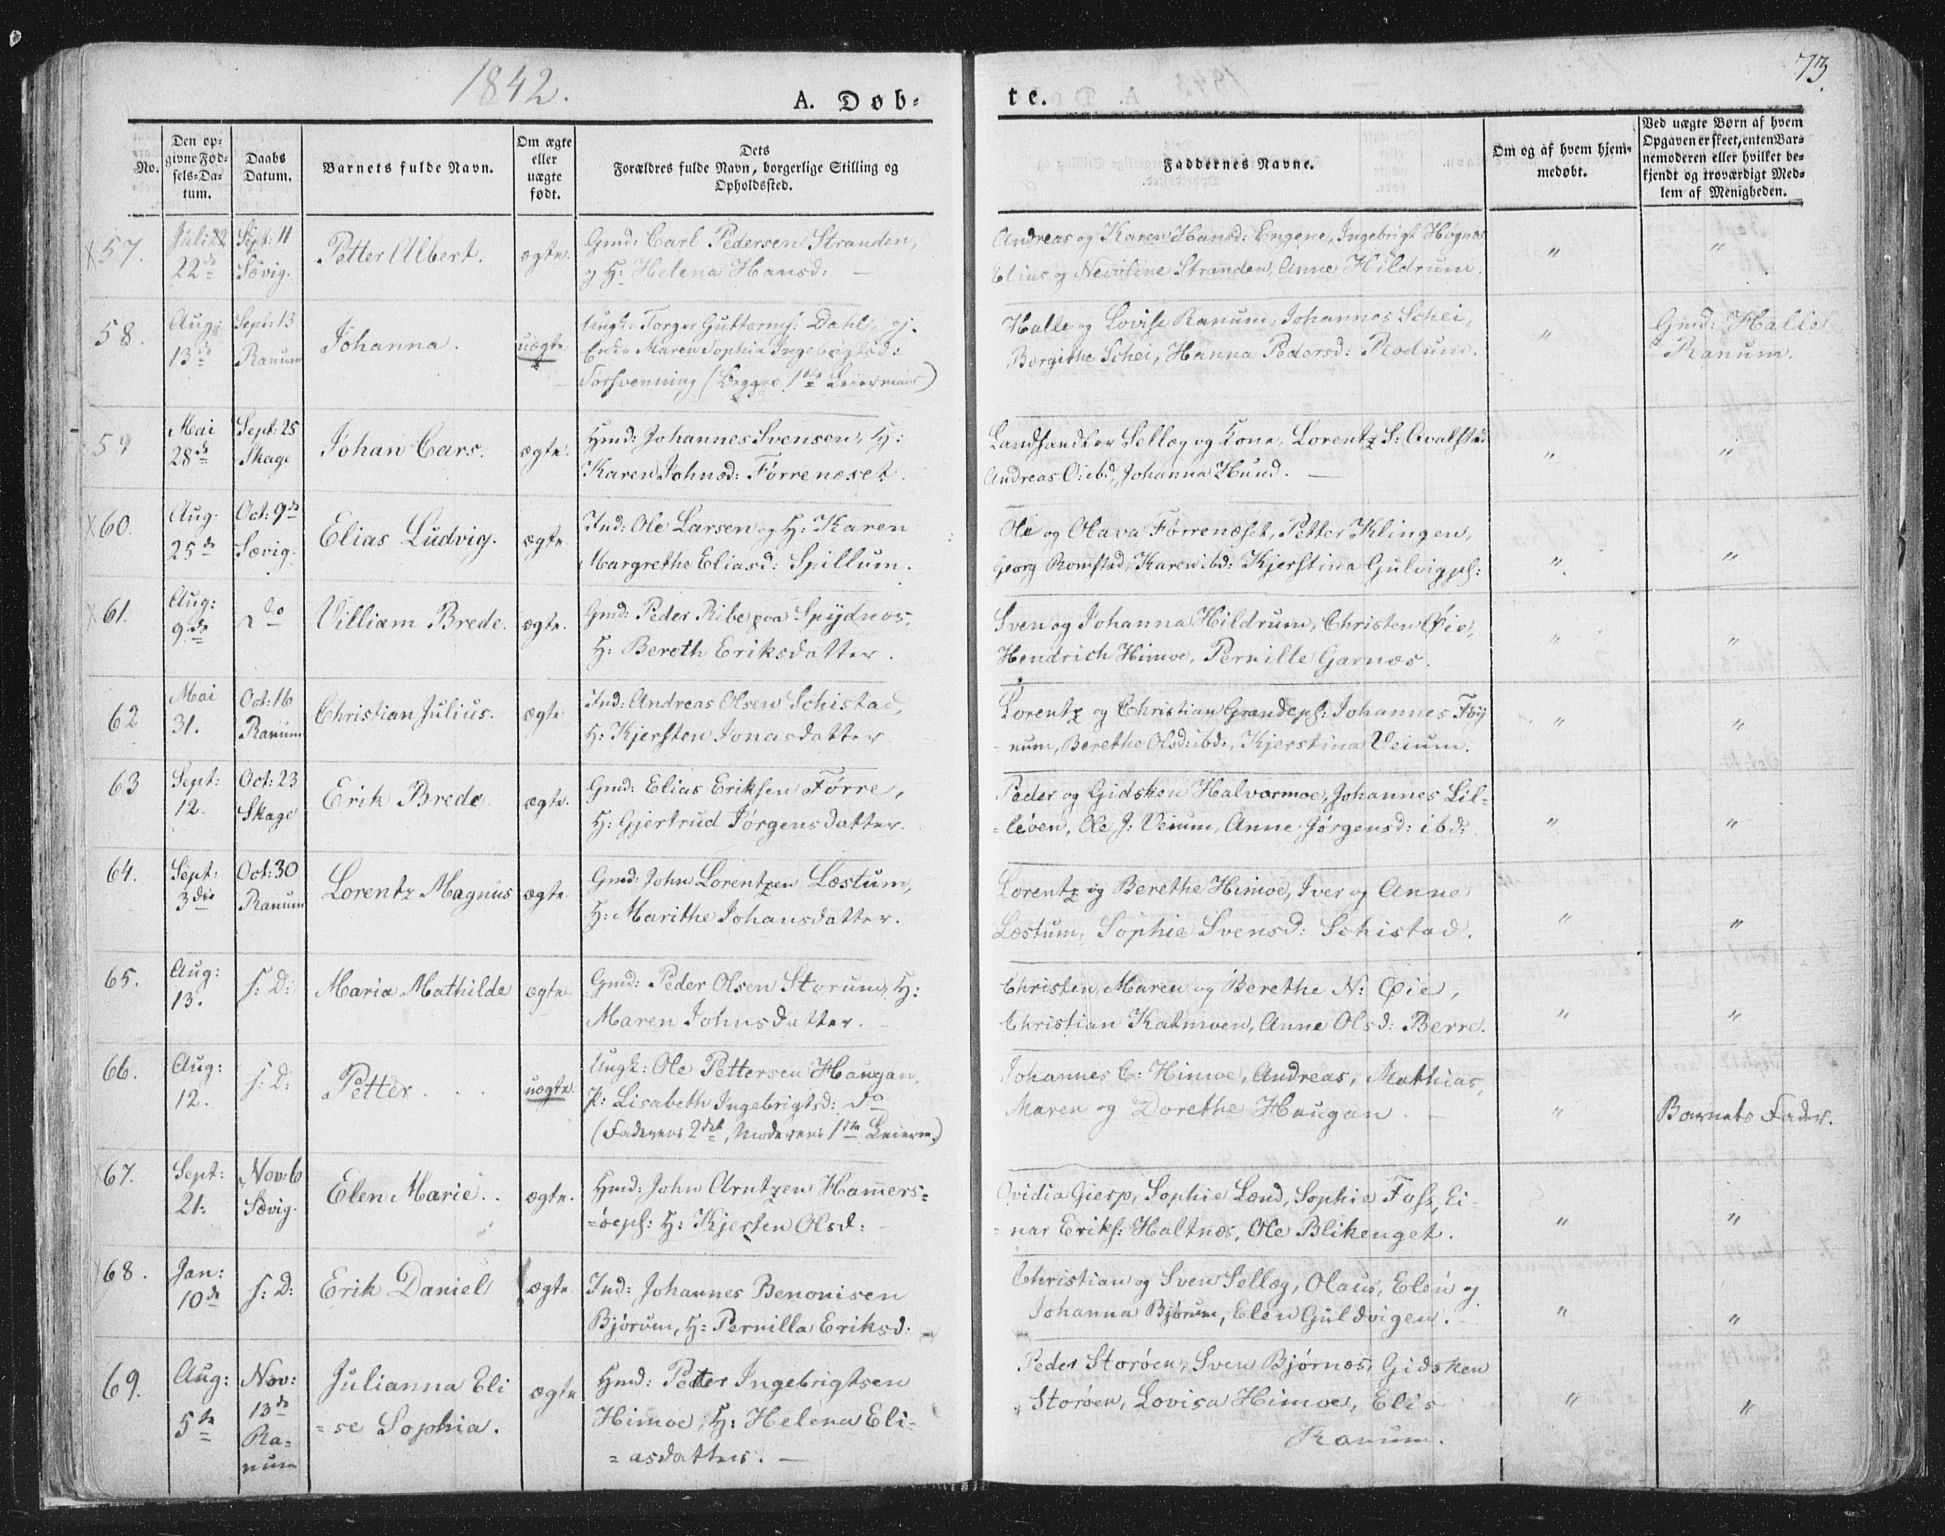 1842.
73.
A. Døb-
te.
No.
Den op-
givne Fød-
sels-Da-
tum.
Daabs
Datum.
Barnets fulde Navn.
Om ægte
eller
uægte
født.
Dets
Forældres fulde Navn, borgerlige Stilling og
Opholdssted.
Faddernes Navne.
Om og af hvem hjem-
medøbt.
Ved uægte Børn af hvem
Opgaven er skeet, enten Bar-
nemoderen eller hvilket be-
kjendt og troværdigt Med-
lem af Menigheden.
57. Juli 22de Sept: 11 Søvig. Petter Albert. ægte.
Gmd: Carl Pedersen Stranden,
og H: Helena Hansd: —
Andreas og Karen Hansd: Engene, Ingebrigt Hognæs,
Elias og Nevoline Stranden, Anne Hildrum. " "
58. Aug: 13de Sept: 13 Ranum Johanna. uægte
Ungk: Torger Guttorms: Dahl, og
Enke Maren Sophia Ingebrigtsd:
(Begges 1ste Leiermaal)
Halle og Lovise Ranum, Johannes Schei,
Borgithe Schei, Hanna Pedersd: Rodum. " Gmd: Halle
Ranum.
59 Mai 28de Sept: 25 Skage Johan Cars. ægte.
Hmd: Johannes Svensen, H:
Karen Johnsd: Førrenæset.
Landhandler Selleg og Kone, Lorentz S: Qvalstad
Andreas O: ibd, Johanna Hund. — " "
60. Aug. 25de Oct: 9de Sævig. Elias Ludvig. ægte
Ind: Ole Larsen og H: Karen
Margrethe Eliasd: Spillum.
Ole og Olava Førrenæset, Petter Klingen,
Georg Romstad, Karen ibd: Kjerstina Gulvig pl: " "
61. Aug: 9de do Villiam Brede. ægte.
Gmd: Peder Ribe paa Spydnæs,
H: Bereth Eriksdatter.
Sven og Johanna Hildrum, Christen Øie,
Hendrich Himoe, Pernille Garnæs. " "
62 Mai 31. Oct: 16 Ranum Christian Julius. ægte
Ind: Andreas Olsen Schistad,
H: Kjersten Jonasdatter
Lorentz og Christian Grandepl: Johannes Føy
num, Berethe Olsd: ibd:, Kjerstina Veium. " "
63 Sept: 12. Oct: 23 Skage Erik Brede. ægte.
Gmd: Elias Eriksen Førre,
H: Gjertrud Jørgensdatter.
Peder og Gidsken Halvormoe, Johannes Lil-
=løen, Ole J: Veium, Anne Jørgensd: ibd: " "
64. Sept: 3die Oct: 30 Ranum Lorentz Magnus ægte.
Gmd: John Lorentzen Læstum,
H: Marithe Johansdatter.
Lorentz og Berethe Himoe, Iver og Anne
Læstum, Sophie Svensd: Schistad. " "
65. Aug: 13. s: D: Maria Mathilde ægte
Gmd: Peder Olsen Storum, H:
Maren Johnsdatter.
Christen, Maren og Berethe N: Øie,
Christian Katmoen, Anne Olsd: Berre. " "
66. Aug: 12. s: D: Petter . . . uægte.
Ungk: Ole Pettersen Haugan,
p: Lisabeth Ingebrigtsd: do
(Faderens 2det, Moderens 1ste Leierm.)
Johannes C: Himoe, Andreas, Mathias,
Maren og Dorethe Haugan. " Barnets Fader.
67. Sept: 21: Nov: 6 Sævig. Elen Marie. ægte.
Hmd: John Arntzen Hamers-
=øepl: H: Kjersten Olsd:
Ovidia Giersp, Sophie Lænd, Sophie Foss, Ei-
=nar Eriks: Haltnæs, Ole Blikenget. " "
68. Jan: 10de s: D: Erik Daniel ægte
Ind: Johannes Benonisen
Bjørum, H: Pernilla Eriksd:
Christian og Sven Selleg, Olaus, Elen og
Johanna Bjørum, Elen Guldvigen. " "
69. Aug: 5te Nov: 13de Ra-
num Julianna Eli
=se Sophia. ægte
Hmd: Peter Ingebrigtsen
Himoe, H: Helena Eli-
=asdatter. —
Peder Storøen, Sven Bjørnæs, Gidsken
Storøen, Lovisa Himoe, Elis
Ranum. " "